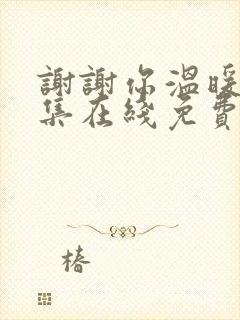 謝謝你溫暖
集在綫免費
椿